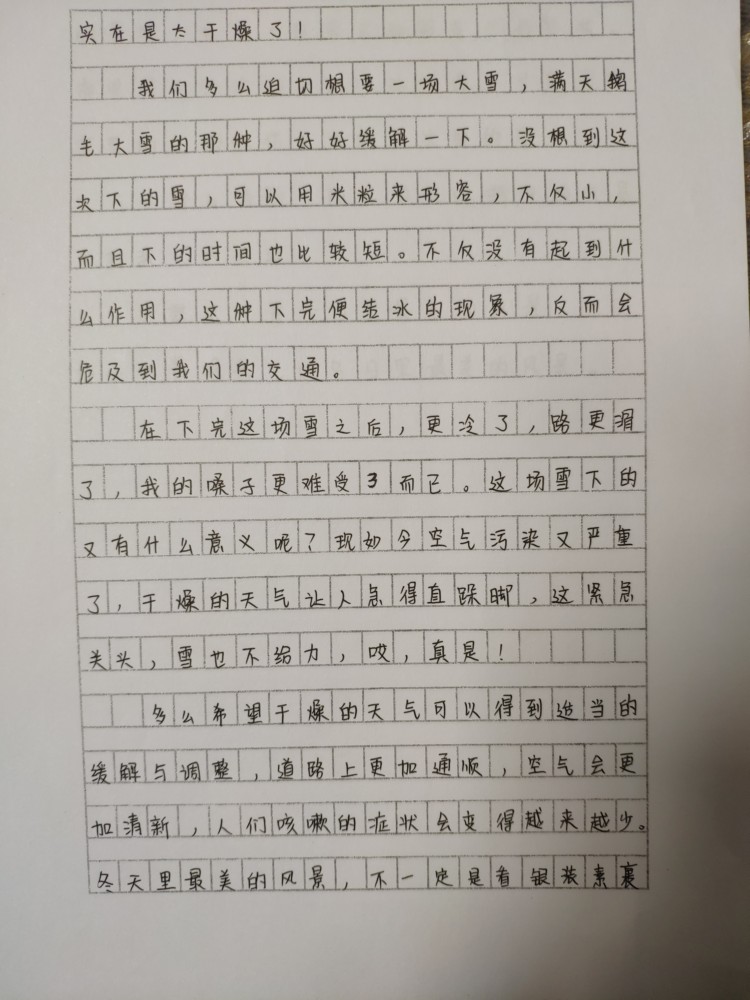 实在是太干燥了！
我们多么迫切想要一场大雪，满天鹅
毛大雪的那种，好好缓解一下。没想到这
次下的雪，可以用米粒来形容，不仅小，
而且下的时间也比较短。不仅没有起到什
么作用，这种下完便结冰的现象，反而会
危及到我们的交通。
在下完这场雪之后，更冷了，路更滑
了，我的嗓子更难受了而已。这场雪下的
又有什么意义呢？现如今空气污染又严重
了，干燥的天气让人急得直跺脚，这紧急
关头，雪也不给力，哎，真是！
多么希望干燥的天气可以得到适当的
缓解与调整，道路上更加通顺，空气会更
加清新，人们咳嗽的症状会变得越来越少。
冬天里最美的风景，不一定是看银装素裹